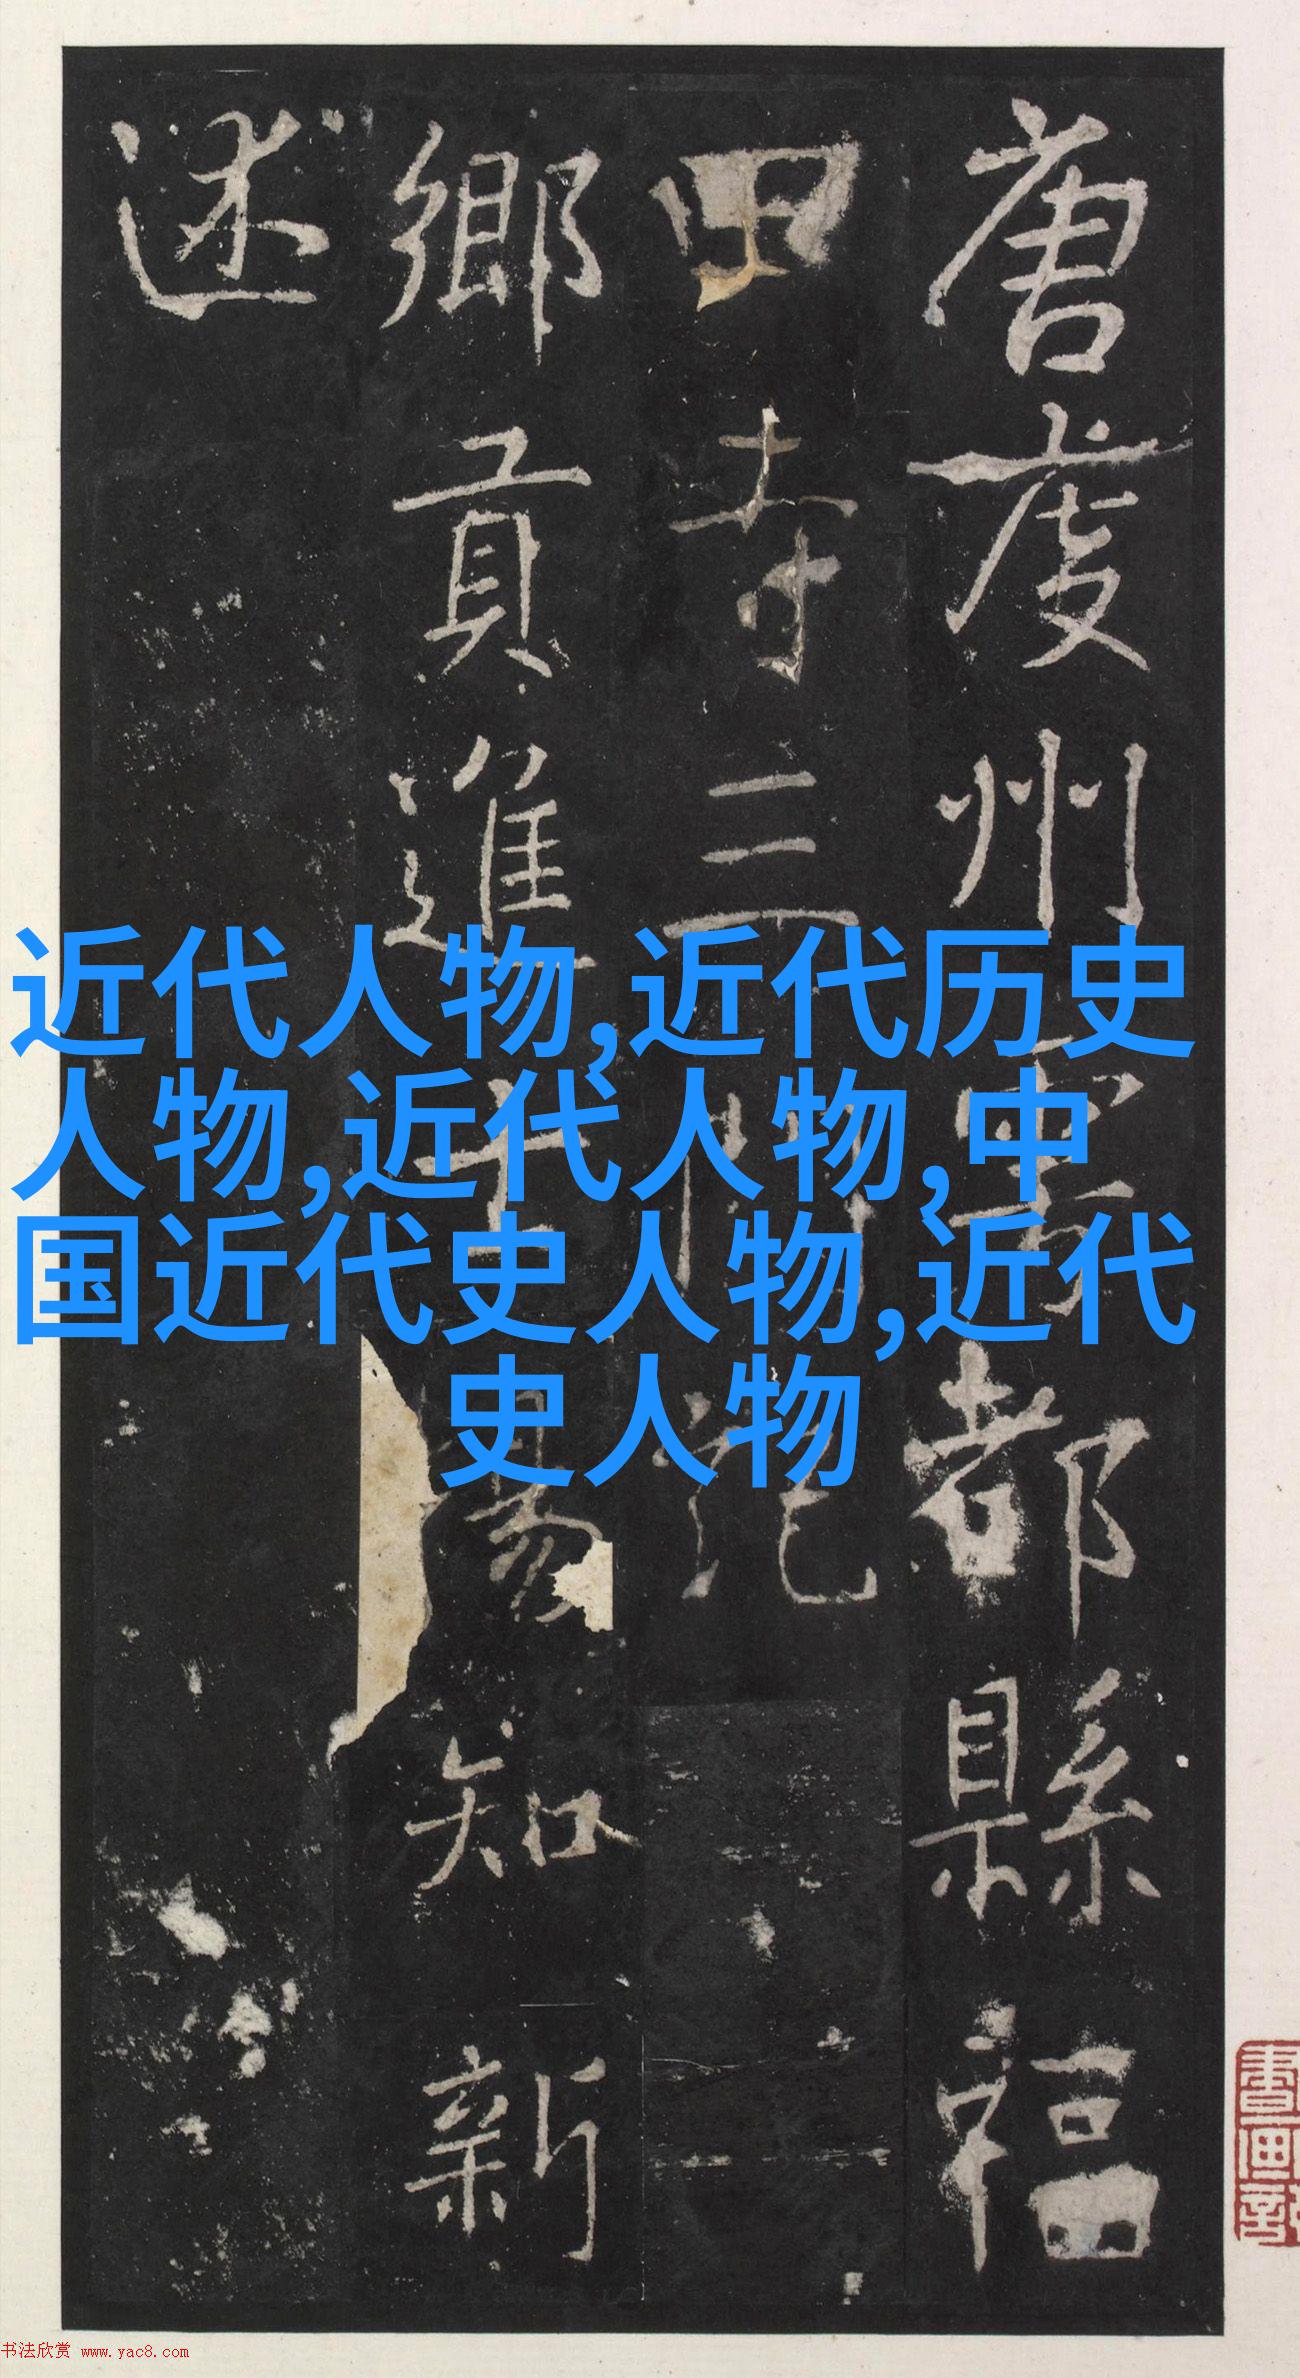 唐虔州雩都縣福
田寺三門記
鄉貢進士易知新
述
近代人物,近代历史
人物,近代人物,中
国近代史人物,近代
史人物
书法欣赏 www.yac8.com